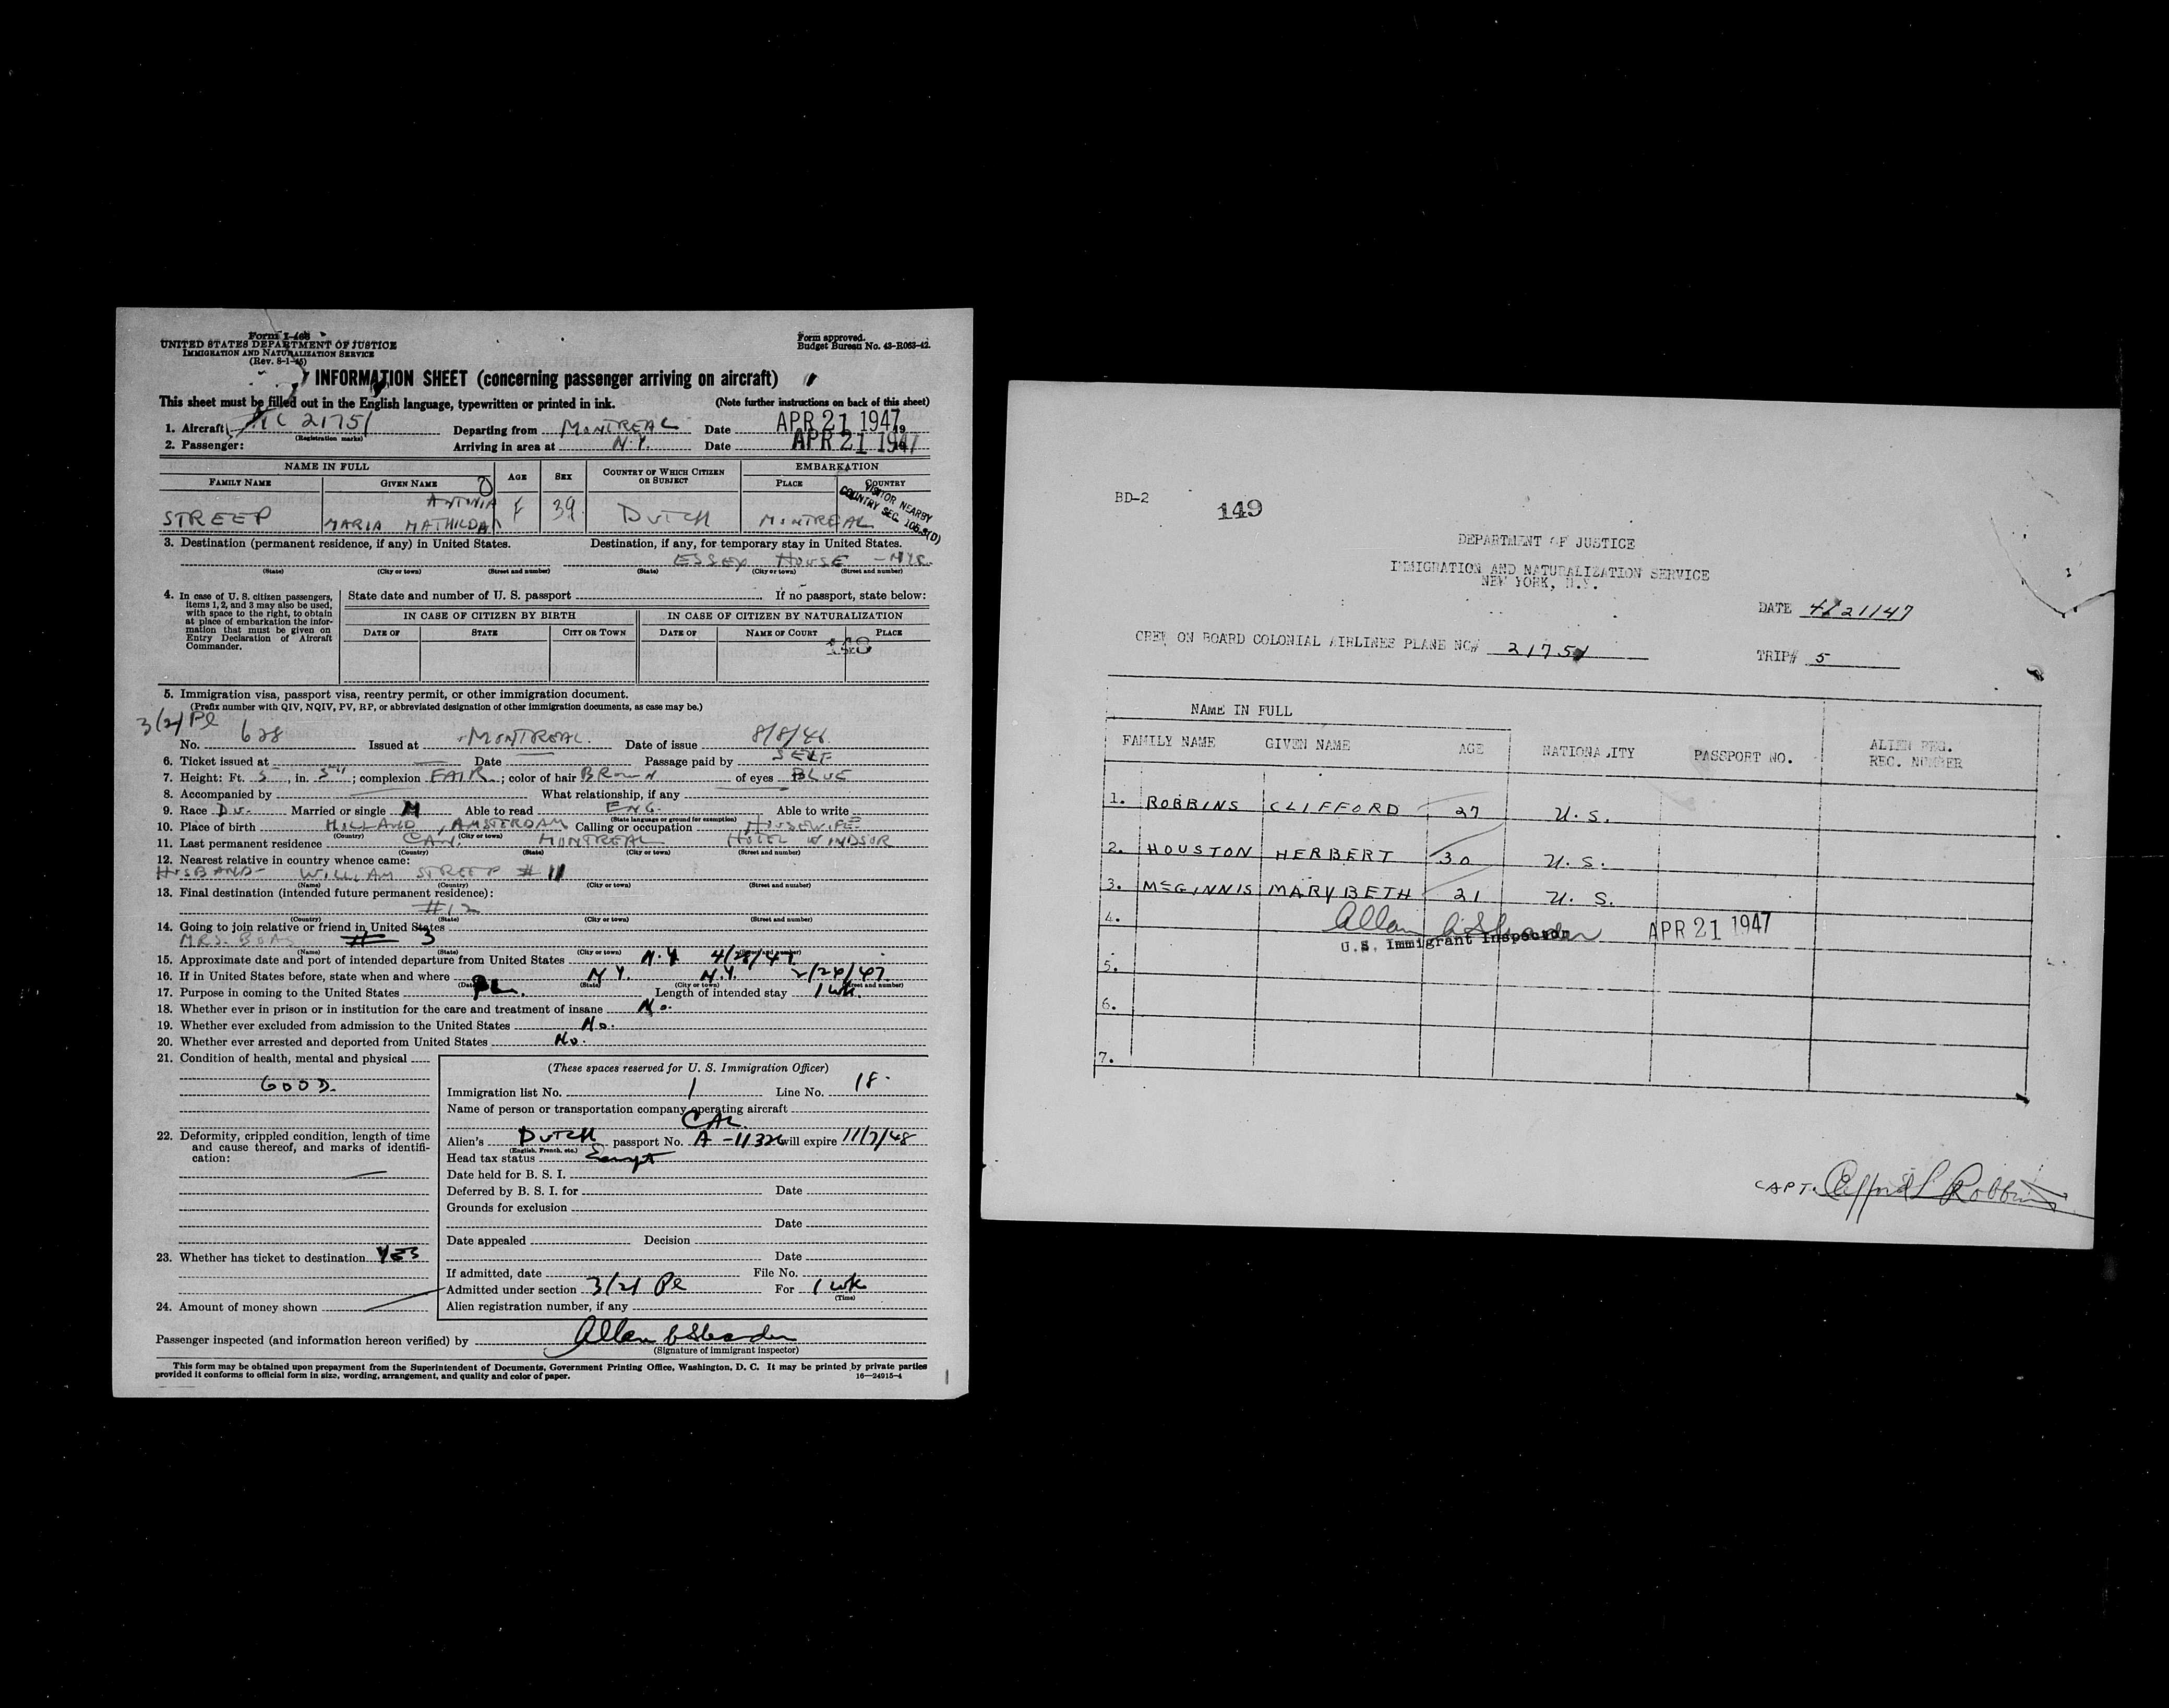 Form I-466
UNITED STATES DEPARTMENT OF JUSTICE
IMMIGRATION AND NATURALIZATION SERVICE
(Rev. 8-1-45)
Form approved.
Budget Bureau No. 43-R063-42.
INFORMATION SHEET (concerning passenger arriving on aircraft)
This sheet must be filled out in the English language, typewritten or printed in ink. (Note further instructions on back of this sheet)
1. Aircraft NC 21751 Departing from MONTREAL Date APR 21 1947 19
(Registration marks)
2. Passenger: Arriving in area at N.Y. Date APR 21 1947
NAME IN FULL AGE SEX COUNTRY OF WHICH CITIZEN OR SUBJECT EMBARKATION
FAMILY NAME GIVEN NAME PLACE COUNTRY
STREEP MARIA MATHILDA ANTONIA F 39 DUTCH MONTREAL
VISITOR NEARBY
COUNTRY SEC. 105.3(D)
3. Destination (permanent residence, if any) in United States. Destination, if any, for temporary stay in United States.
ESSEX HOUSE - NYC.
(State) (City or town) (Street and number) (State) (City or town) (Street and number)
4. In case of U. S. citizen passengers, items 1, 2, and 3 may also be used, with space to the right, to obtain at place of embarkation the information that must be given on Entry Declaration of Aircraft Commander.
State date and number of U. S. passport If no passport, state below:
IN CASE OF CITIZEN BY BIRTH IN CASE OF CITIZEN BY NATURALIZATION
DATE OF STATE CITY OR TOWN DATE OF NAME OF COURT PLACE
148
5. Immigration visa, passport visa, reentry permit, or other immigration document.
(Prefix number with QIV, NQIV, PV, RP, or abbreviated designation of other immigration documents, as case may be.)
3(2) Pl
No. 628 Issued at MONTREAL Date of issue 8/8/46
6. Ticket issued at Date Passage paid by SELF
7. Height: Ft. 5, in. 5½; complexion FAIR; color of hair BROWN of eyes BLUE
8. Accompanied by What relationship, if any
9. Race Du. Married or single M Able to read ENG. Able to write
(State language or ground for exemption)
10. Place of birth HOLLAND, AMSTERDAM Calling or occupation HOUSEWIFE
(Country) (City or town)
11. Last permanent residence CAN. MONTREAL HOTEL WINDSOR
(Country) (State) (City or town) (Street and number)
12. Nearest relative in country whence came:
HUSBAND- WILLIAM STREEP #11
(Name) (Country) (City or town) (Street and number)
13. Final destination (intended future permanent residence):
#12
(Country) (State) (City or town) (Street and number)
14. Going to join relative or friend in United States
MRS. BOAS # 3
(Name) (State) (City or town) (Street and number)
15. Approximate date and port of intended departure from United States N.Y 4/28/47
16. If in United States before, state when and where N.Y. N.Y. 2/24/47
(Date) (State) (City or town) (Street and number)
17. Purpose in coming to the United States PL. Length of intended stay 1 wk.
18. Whether ever in prison or in institution for the care and treatment of insane No.
19. Whether ever excluded from admission to the United States No.
20. Whether ever arrested and deported from United States No.
21. Condition of health, mental and physical
GOOD.
22. Deformity, crippled condition, length of time and cause thereof, and marks of identification:
23. Whether has ticket to destination YES
24. Amount of money shown
(These spaces reserved for U. S. Immigration Officer)
Immigration list No. 1 Line No. 18.
Name of person or transportation company operating aircraft
CAL
Alien's DUTCH passport No. A-11326 will expire 11/7/48
(English, French, etc.)
Head tax status Exempt
Date held for B. S. I.
Deferred by B. S. I. for Date
Grounds for exclusion
Date
Date appealed Decision
Date
If admitted, date File No.
Admitted under section 3/21 Pl For 1 wk
(Time)
Alien registration number, if any
Passenger inspected (and information hereon verified) by
(Signature of immigrant inspector)
This form may be obtained upon prepayment from the Superintendent of Documents, Government Printing Office, Washington, D. C. It may be printed by private parties
provided it conforms to official form in size, wording, arrangement, and quality and color of paper. 16—24915-4
BD-2
149
DEPARTMENT OF JUSTICE
IMMIGRATION AND NATURALIZATION SERVICE
NEW YORK, N.Y.
DATE 4/21/47
CREW ON BOARD COLONIAL AIRLINES PLANE NO# 21751
TRIP# 5
NAME IN FULL
FAMILY NAME GIVEN NAME AGE NATIONALITY PASSPORT NO. ALIEN REG. REC. NUMBER
1. ROBBINS CLIFFORD 27 U.S.
2. HOUSTON HERBERT 30 U.S.
3. MCGINNIS MARYBETH 21 U.S.
4. APR 21 1947
U.S. Immigrant Inspector
5.
6.
7.
CAPT. Clifford L Robbins